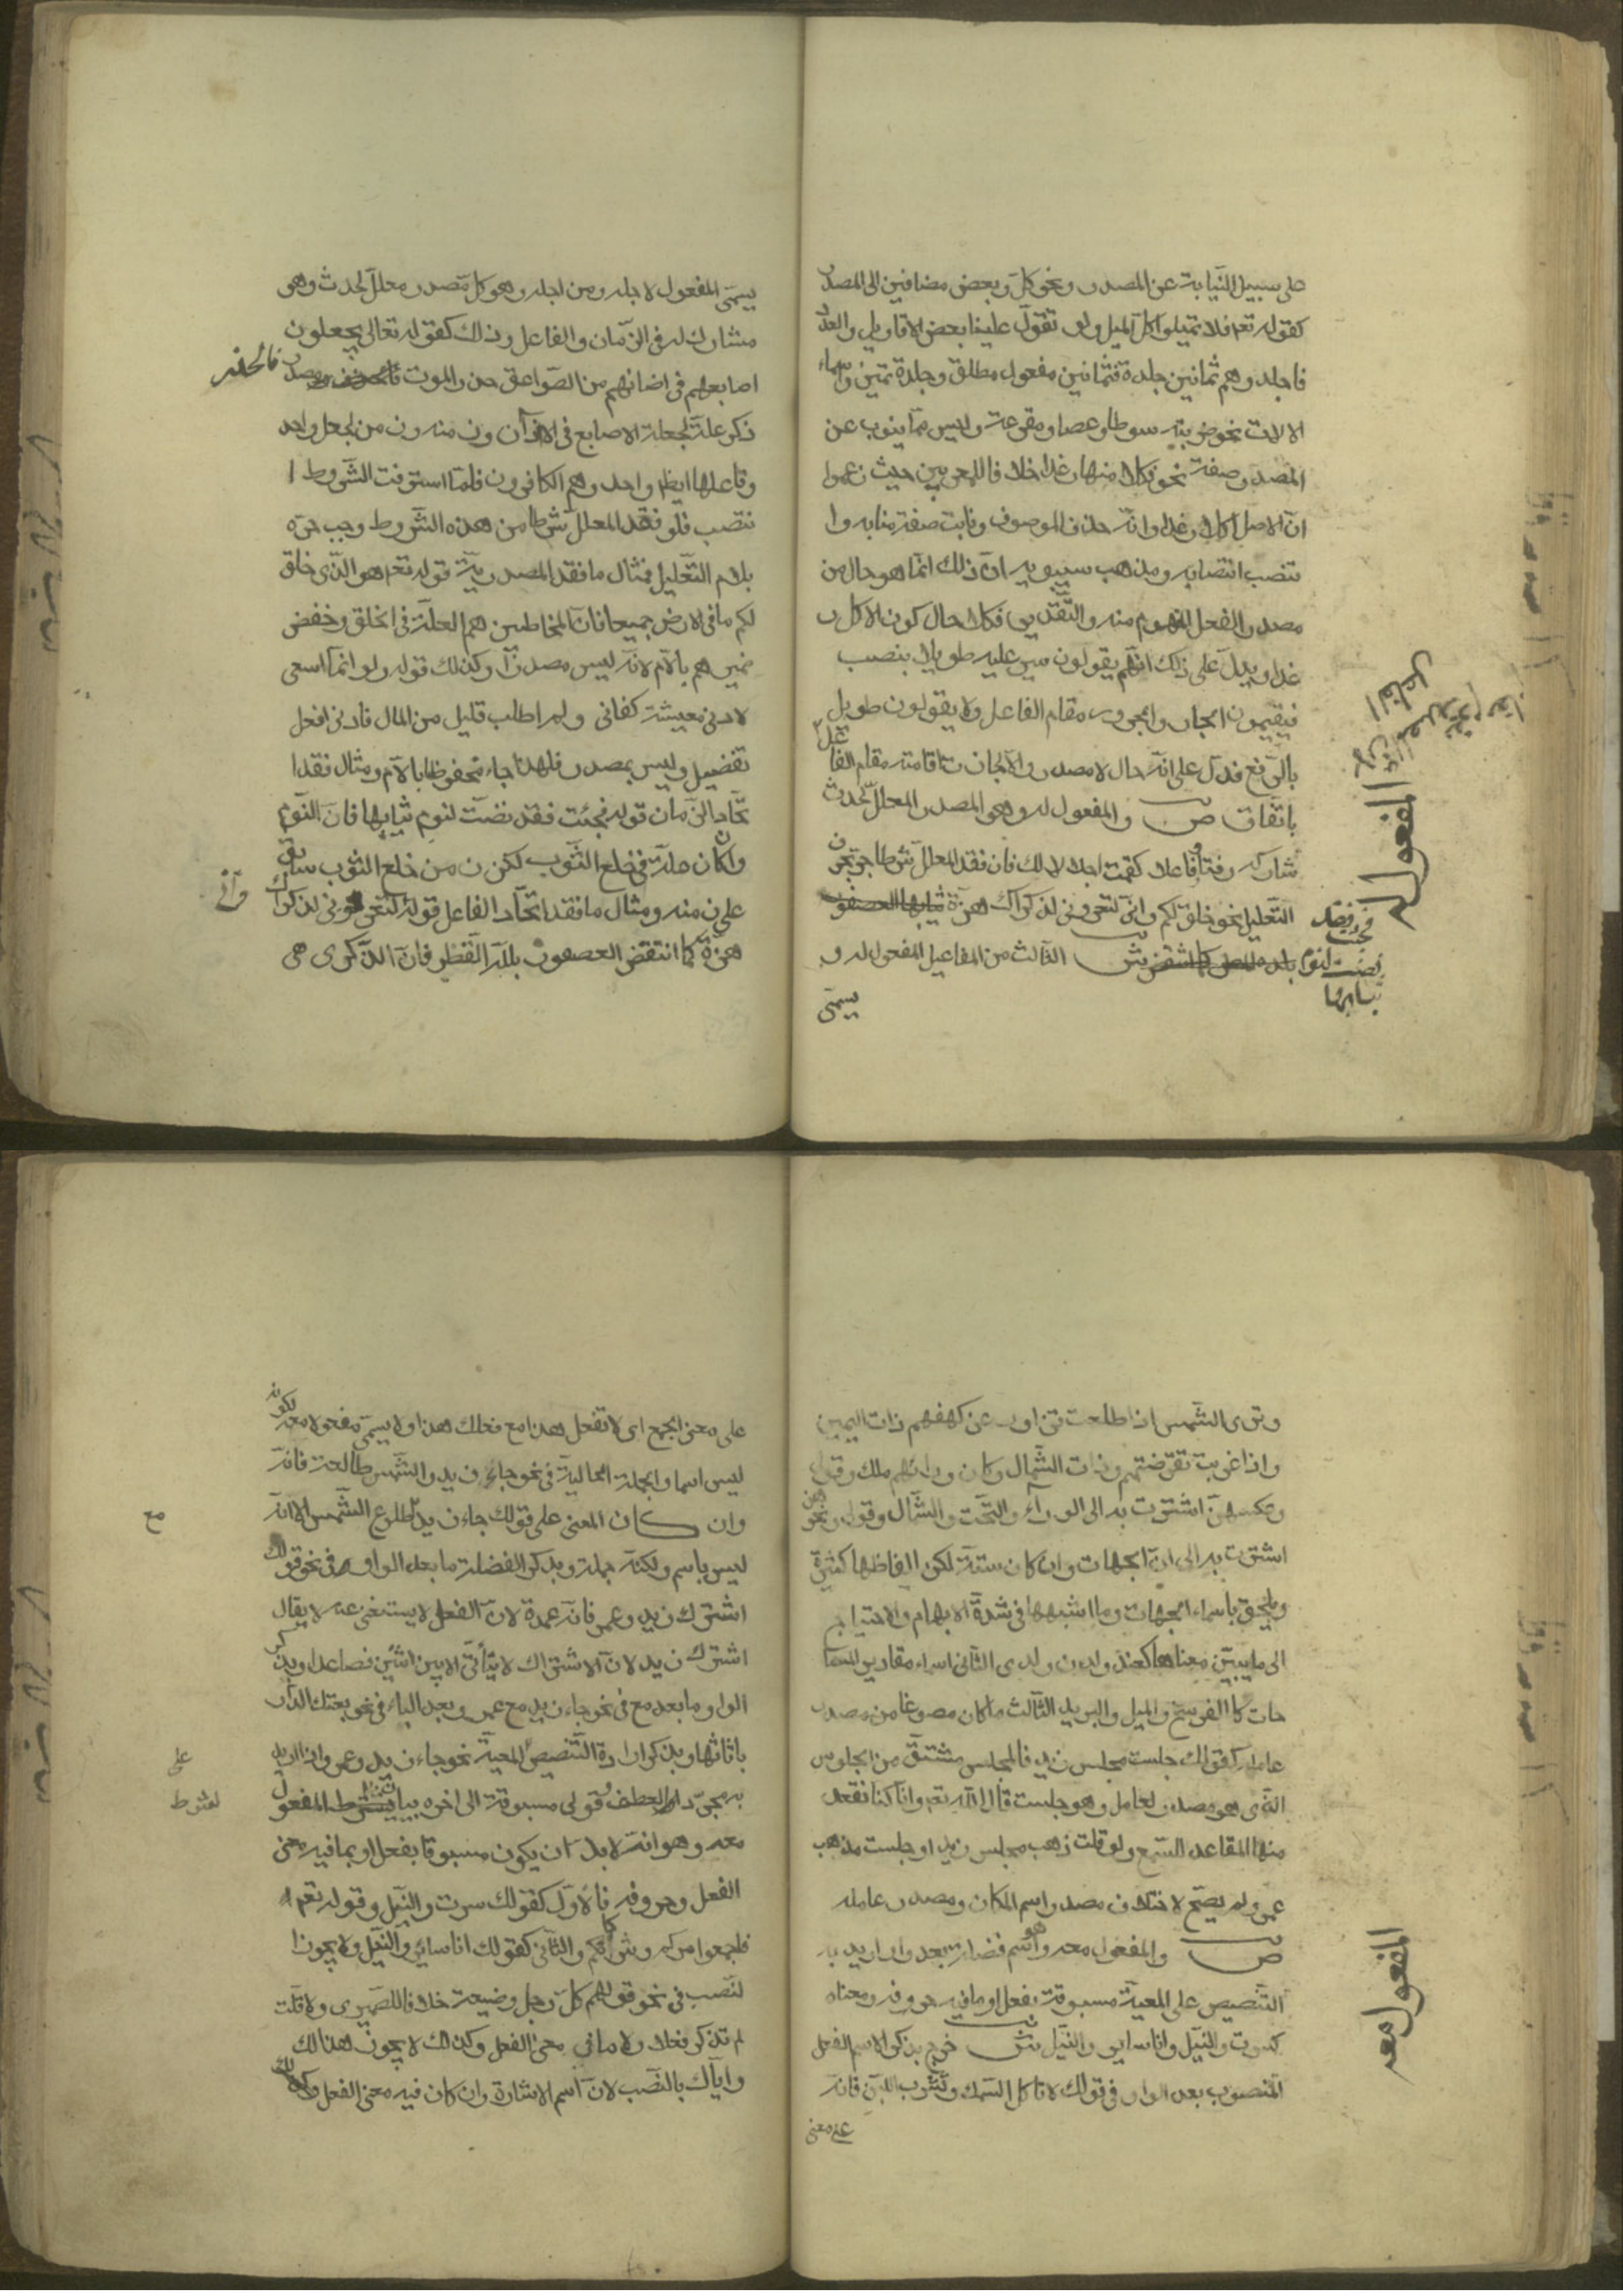 على سبيل النيابة عن المصدر ونحو كل وبعض مضافين الى المصدر
كقوله تعم فلا تميلوا كل الميل ولو تقول علينا بعض الاقاويل والعدد
فاجلدوهم ثمانين جلدة فثمانين مفعول مطلق وجلدة تميز واسماء
الالات نحو ضربته سوطا وعصا ومقرعة وليس مما ينوب عن
المصدر صفة نحو فكلا منها رغدا خلافا للمعربين حيث زعموا
ان الاصل اكلا رغدا وانه حذف الموصوف ونابت صفة منابه وا
نتصب انتصابه ومذهب سيبويه ان ذلك انما هو حال من
مصدر الفعل المفهوم منه والتقدير فكلا حال كون الاكل
غدا ويدل على ذلك انهم يقولون سير عليه طويلا بنصب
فيقيمون الجار والمجرور مقام الفاعل ولا يقولون طويل
بالرفع فدل على انه حال لا مصدر والا لجازت اقامته مقام الفا
عل
باتفاق ص والمفعول له وهو المصدر المعلل لحدث
شاركه وقتا وفاعلا كقمت اجلالا لك فان فقد المعلل شرطا جر بحرف
التعليل نحو خلق لكم واني لتعروني لذكراك هزة
الثالث من المفاعيل المفعول له و
يسمى
المفعول له
فجئت وقد
نضت لنوم
ثيابها
يسمى المفعول لاجله ومن اجله وهو كل مصدر معلل لحدث وهو
مشارك له في الزمان والفاعل وذلك كقوله تعالى يجعلون
اصابعهم في اضانهم من الصواعق حذر الموت مصدر
فالحذر
ذكر علة لجعلة الاصابع في الاذآن وزمنه وزمن الجعل واحد
وفاعلها ايظا واحد وهم الكافرون فلما استوفت الشروط ا
نتصب فلو فقد المعلل شرطا من هذه الشروط وجب جره
بلام التعليل فمثال ما فقد المصدرية قوله تعم هو الذي خلق
لكم ما في الارض جميعا فان المخاطبين هم العلة في الخلق وخفض
ضميرهم بالام لانه ليس مصدرا وكذلك قوله ولو انما اسعى
لادنى معيشة كفاني ولم اطلب قليل من المال فادنى افعل
تفضيل وليس بمصدر فلهذا جاء مخفوظا بالام ومثال فقد ا
تحاد الزمان قوله فجئت فقد نضت لنوم ثيابها فان النوم
وان كان علة في خلع الثوب لكن زمن خلع الثوب سابق
على زمنه ومثال ما فقد اتحاد الفاعل قوله لتعروني لذكراك
واني
هزة كما انتفض العصفور بلله القطر فان الذكرى هي
وترى الشمس اذا طلعت تزاور عن كهفهم ذات اليمين
واذا غربت تقرضتهم وذات الشمال وكان ورائهم ملك وقولي
وعكسهن اشترت به الى الوراء والتحت والشمال وقولي ونحوهن
اشرت به الى ان الجهات وان كان ستة لكن الفاظها كثيرة
ويلحق باسماء الجهات وما اشبهها في شدة الابهام والاحتياج
الى ما يبين معناها كعند ولدن ولدى الثاني اسماء مقادير المسا
حات كالفرسخ والميل والبريد الثالث ما كان مصوغا من مصدر
عامله كقولك جلست مجلس زيد فالمجلس مشتق من الجلوس
الذي هو مصدر لعامل وهو جلست قال الله تعم وانا كنا نقعد
منها المقاعد السمع ولو قلت ذهب مجلس زيد او جلست مذهب
عمرو لم يصح لاختلاف مصدر اسم المكان ومصدر عامله
ص والمفعول معه وهو اسم فضلة بعد واو اريد به
التنصيص على المعية مسبوقة بفعل او ما فيه حروفه ومعناه
كسرت والنيل وانا ساير والنيل ش خرج بذكر الاسم الفعل
المنصوب بعد الواو في قولك لا تاكل السمك وتشرب اللبن فانه
على معنى
المفعول معه
على معنى الجمع اى لا تفعل هذا مع فعلك هذا ولا يسمى مفعولا معه لكونه
ليس اسما والجملة الحالية في نحو جاء زيد والشمس طالعة فانه
وان كان المعنى على قولك جاء زيد طلوع الشمس الا انه
مع
ليس باسم ولكنه جملة وبذكر الفضلة ما بعد الواو في نحو قولك
اشترك زيد وعمرو فانه عمدة لان الفعل لا يستغنى عنه لا يقال
اشترك زيد لان الاشتراك لا يتأتى الا بين اثنين فصاعدا وبذكر
الواو ما بعد مع في نحو جاء زيد مع عمرو وبعد الباء في نحو بعتك الدار
باثاثها وبذكر ارادة التنصيص المعية نحو جاء زيد وعمرو اذا اريد
على
به مجرد العطف وقولي مسبوقة الى اخره بيا المفعول
لشرط
معه وهو انه لا بد ان يكون مسبوقا بفعل او بما فيه معنى
الفعل وحروفه فالاول كقولك سرت والنيل وقوله تعم
فاجمعوا امركم وشركاءكم والثاني كقولك انا سائر والنيل ولا يجوز ا
لنصب في نحو قولهم كل رجل وضيعة خلافا للصيمري ولا قلت
لم تذكر فعلا ولا ما في معنى الفعل وكذلك لا يجوز هذا لك
واياك بالنصب لان اسم الاشارة وان كان فيه معنى الفعل وكذلك